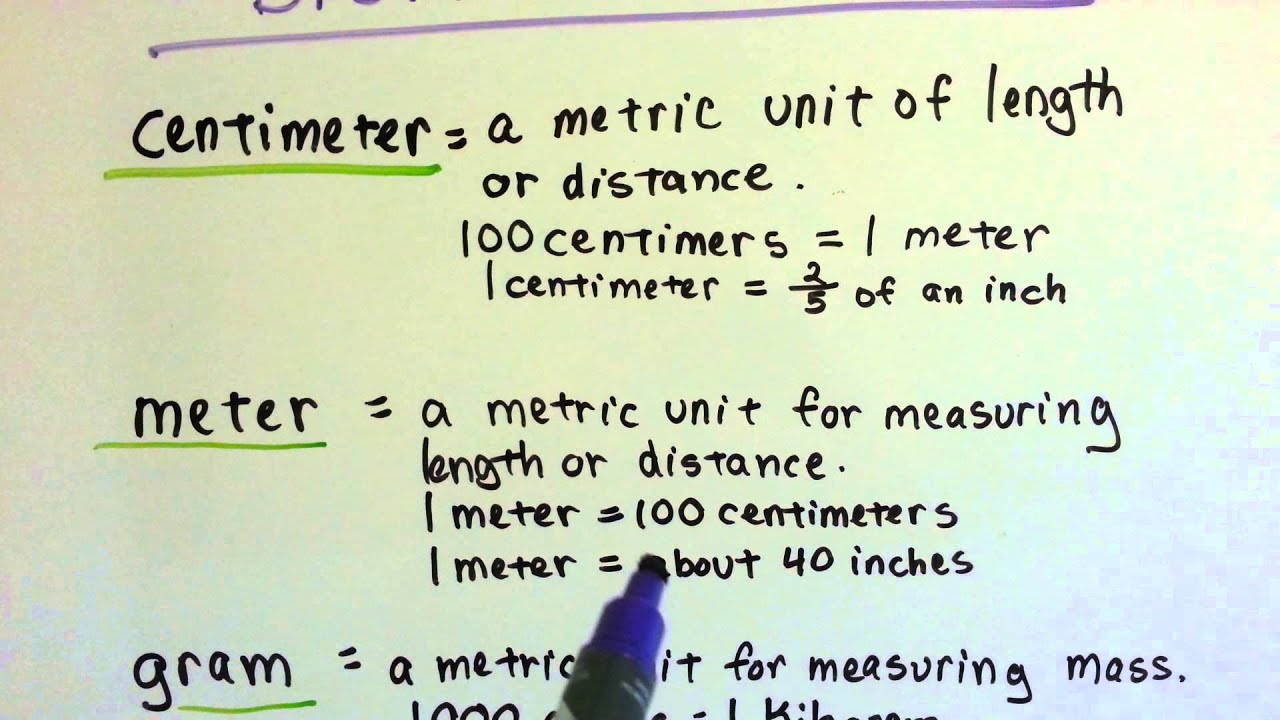 centimeter = a metric unit of length
or distance.
100 centimers = 1 meter
1 centimeter = 2/5 of an inch
meter = a metric unit for measuring
length or distance.
1 meter = 100 centimeters
1 meter = about 40 inches
gram = a metric unit for measuring mass.
1000 = 1 Kilogram